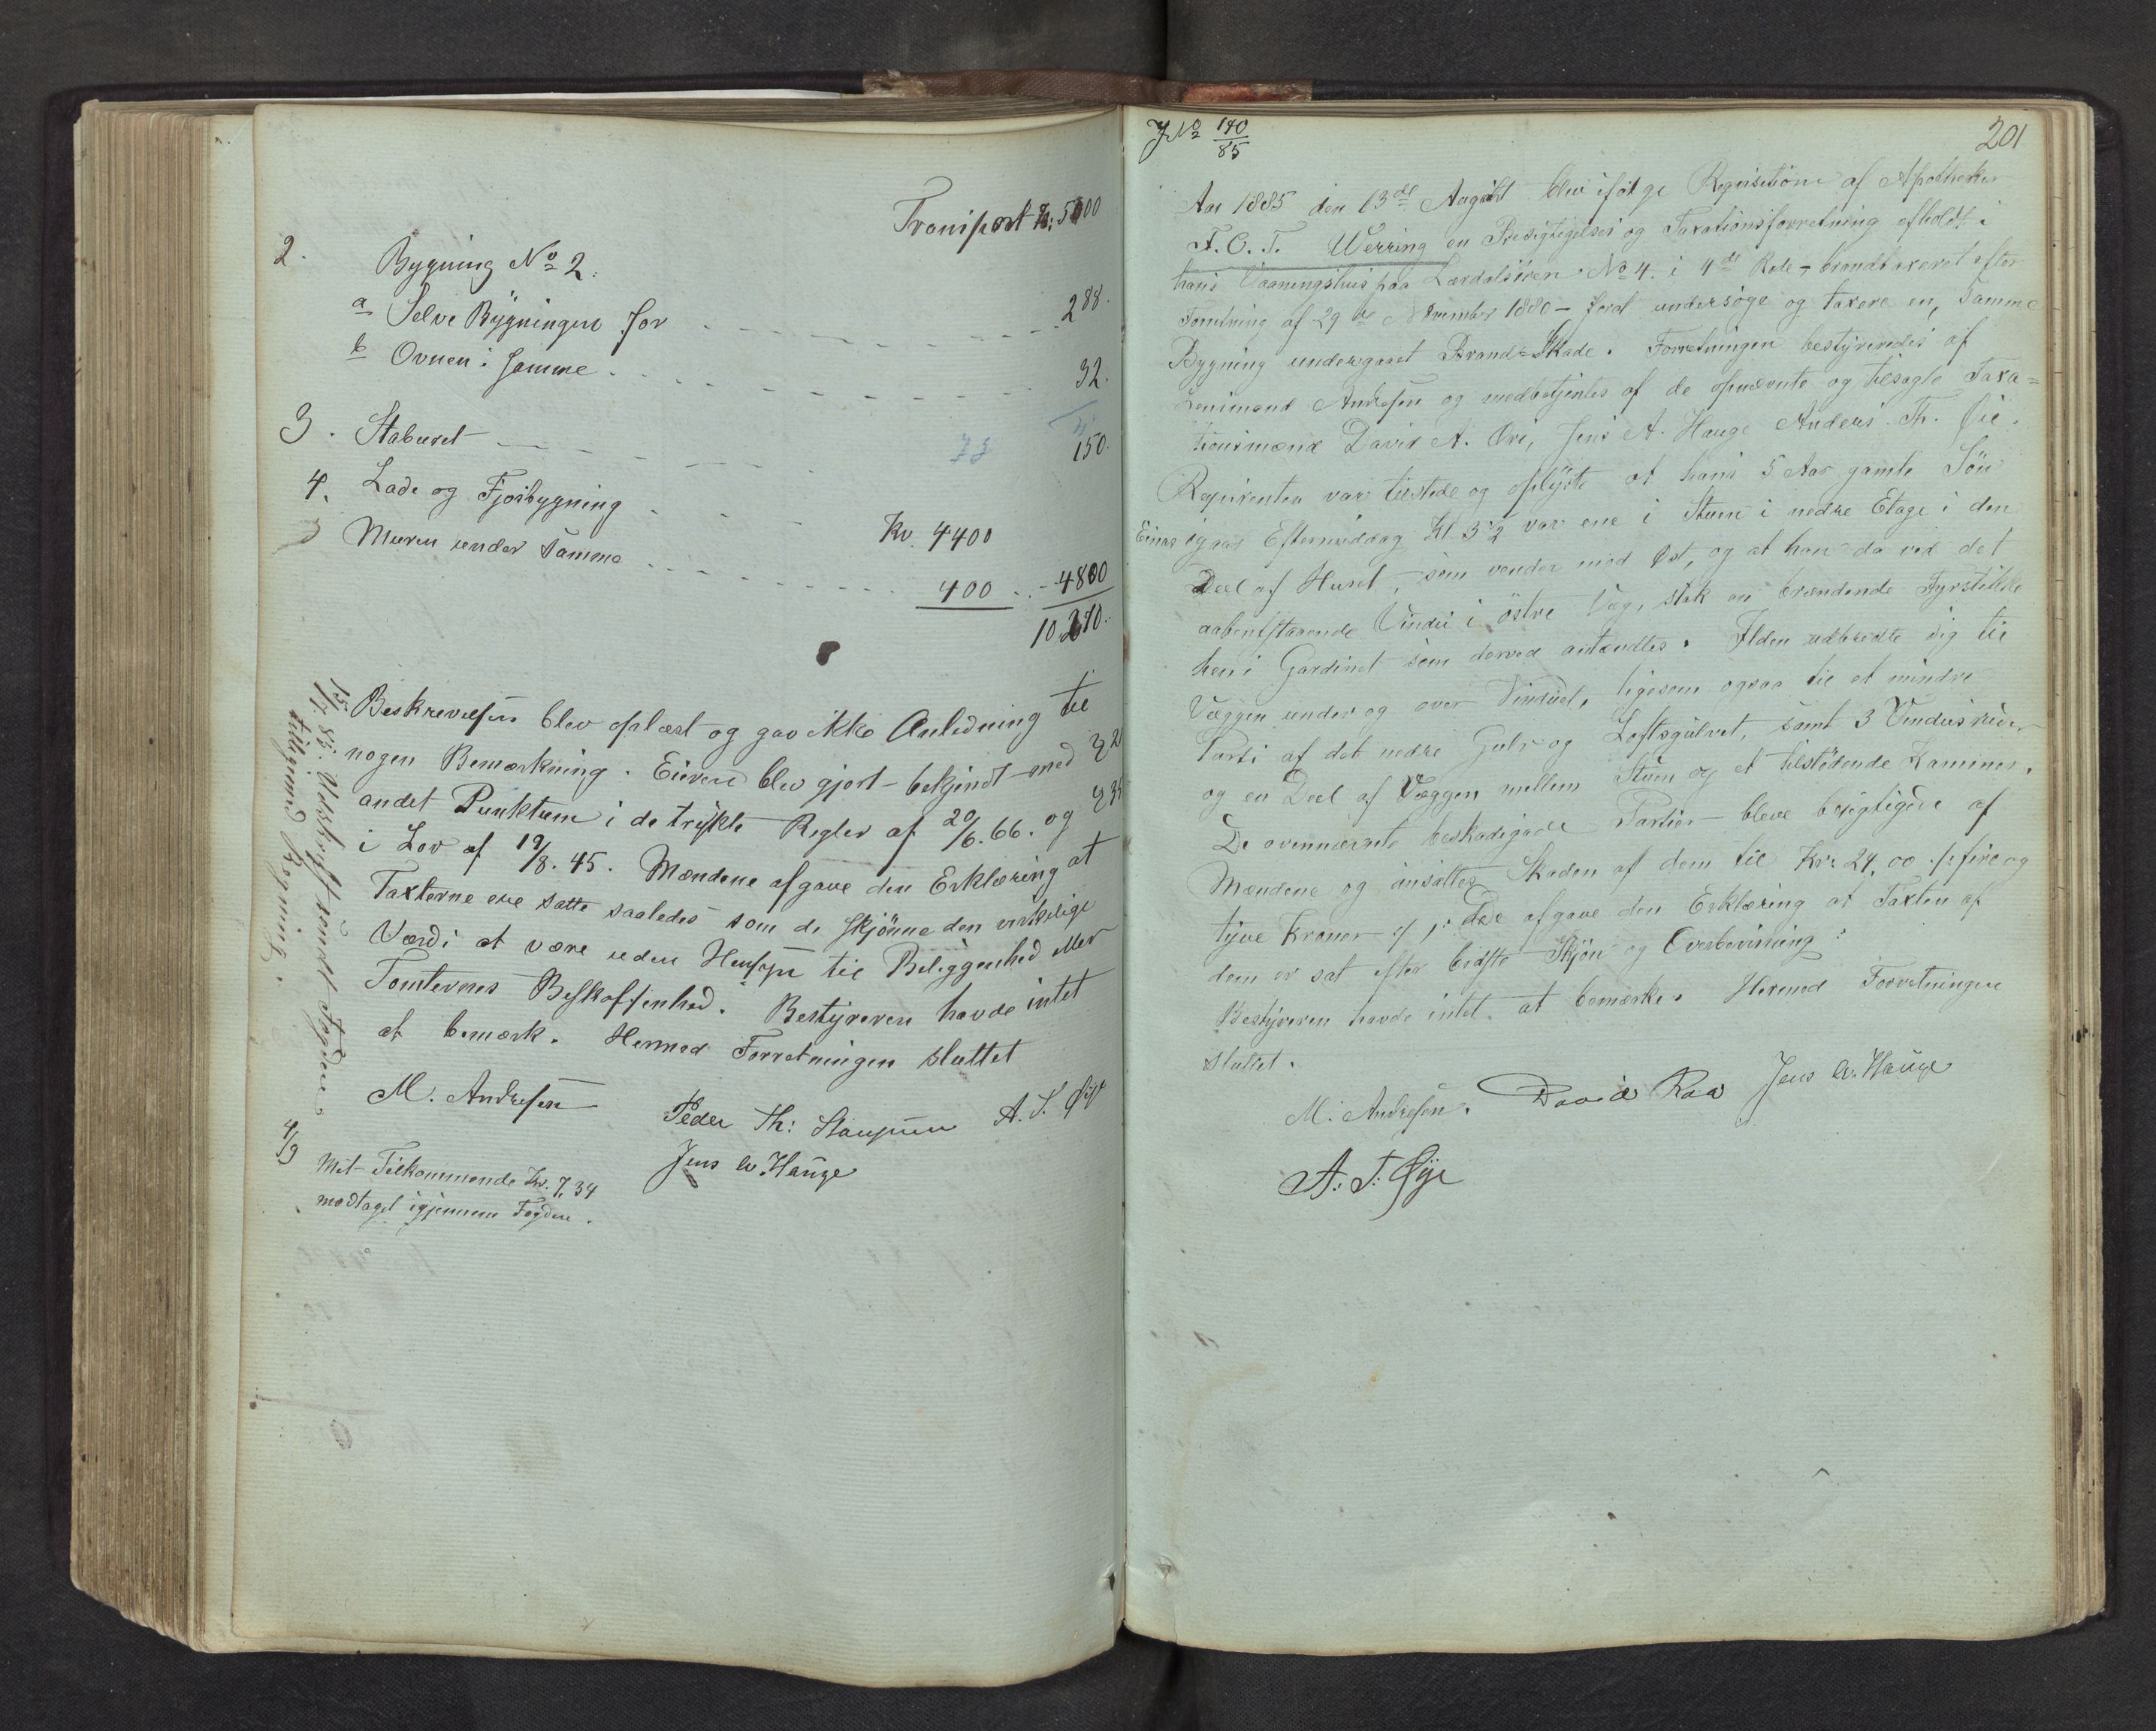 Transport Kr. 5000
2. Bygning No 2.
a Selve Bygningen for 288.
b Ovnen i samme 32.
3. Staburet 150.
4. Lade og Fjøsbygning Kr. 4400
Muren under samme 400 4800
10.270.
Beskrivelsen blev oplæst og gav ikke Anledning til
nogen Bemærkning. Eieren blev gjort bekjendt med § 2
andet Punktum i de trykte Regler af 20/6. 66. og § 35
i Lov af 19/8. 45. Mændene afgave den Erklæring at
Taxterne ere satte saaledes som de skjønne den virkelige
Værdi at være uden Hensyn til Beliggenhed eller
Tomternes Beskaffenhed. Bestyreren havde intet
at bemærk. Hermed Forretningen sluttet
M. Andresen
Peder Th: A. T. Øye
Jens A. Hauge
15/7. 85. Udskrift sendt Fogden
tilligemed Regning.
4/9 Mit Tilkommende Kr. 7,34
modtaget igjennem Fogden.
J No 140/85
201
Aar 1885 den 13de August blev ifølge Requisition af Apotheker
F. C. T. Werring en Besigtigelses og Taxationsforretning afholdt i
hans Vaaningshus paa Lærdalsøren No 4. i 4de Rode – brandtaxeret efter
Forretning af 29de November 1880 – for at undersøge og taxere en, samme
Bygning undergaaet Brand-Skade. Forretningen bestyredes af
Lensmand Andresen og medbetjentes af de opnævnte og tilsagte Taxa=
tionsmænd David A. Ori, Jens A. Hauge Anders Th. Øie.
Requirenten var tilstede og oplyste at hans 5 Aar gamle Søn
Einar igaar Eftermiddag Kl. 3½ var ene i Stuen i nedre Etage i den
Deel af Huset, som vender mod Øst, og at han da ved det
aabentstaaende Vindu i østre Væg, stak en brændende Fyrstikke
hen i Gardinet som derved antændtes. Ilden udbredte sig til
Væggen under og over Vinduet, ligesom ogsaa til et mindre
Parti af det nedre Gulv og Loftsgulvet, samt 3 Vindusruder
og en Deel af Væggen mellem Stuen og et tilstødende Kammer.
De ovennævnte beskadigede Partier bleve besigtigede af
Mændene og ansattes Skaden af dem til Kr. 24,00 /: fire og
tyve Kroner :/ De afgave den Erklæring at Taxten af
dem er sat efter bedste Skjøn og Overbevisning:
Bestyreren havde intet at bemærke. Hermed Forretningen
sluttet.
M. Andresen. David Jens A. Hauge
A. T. Øye